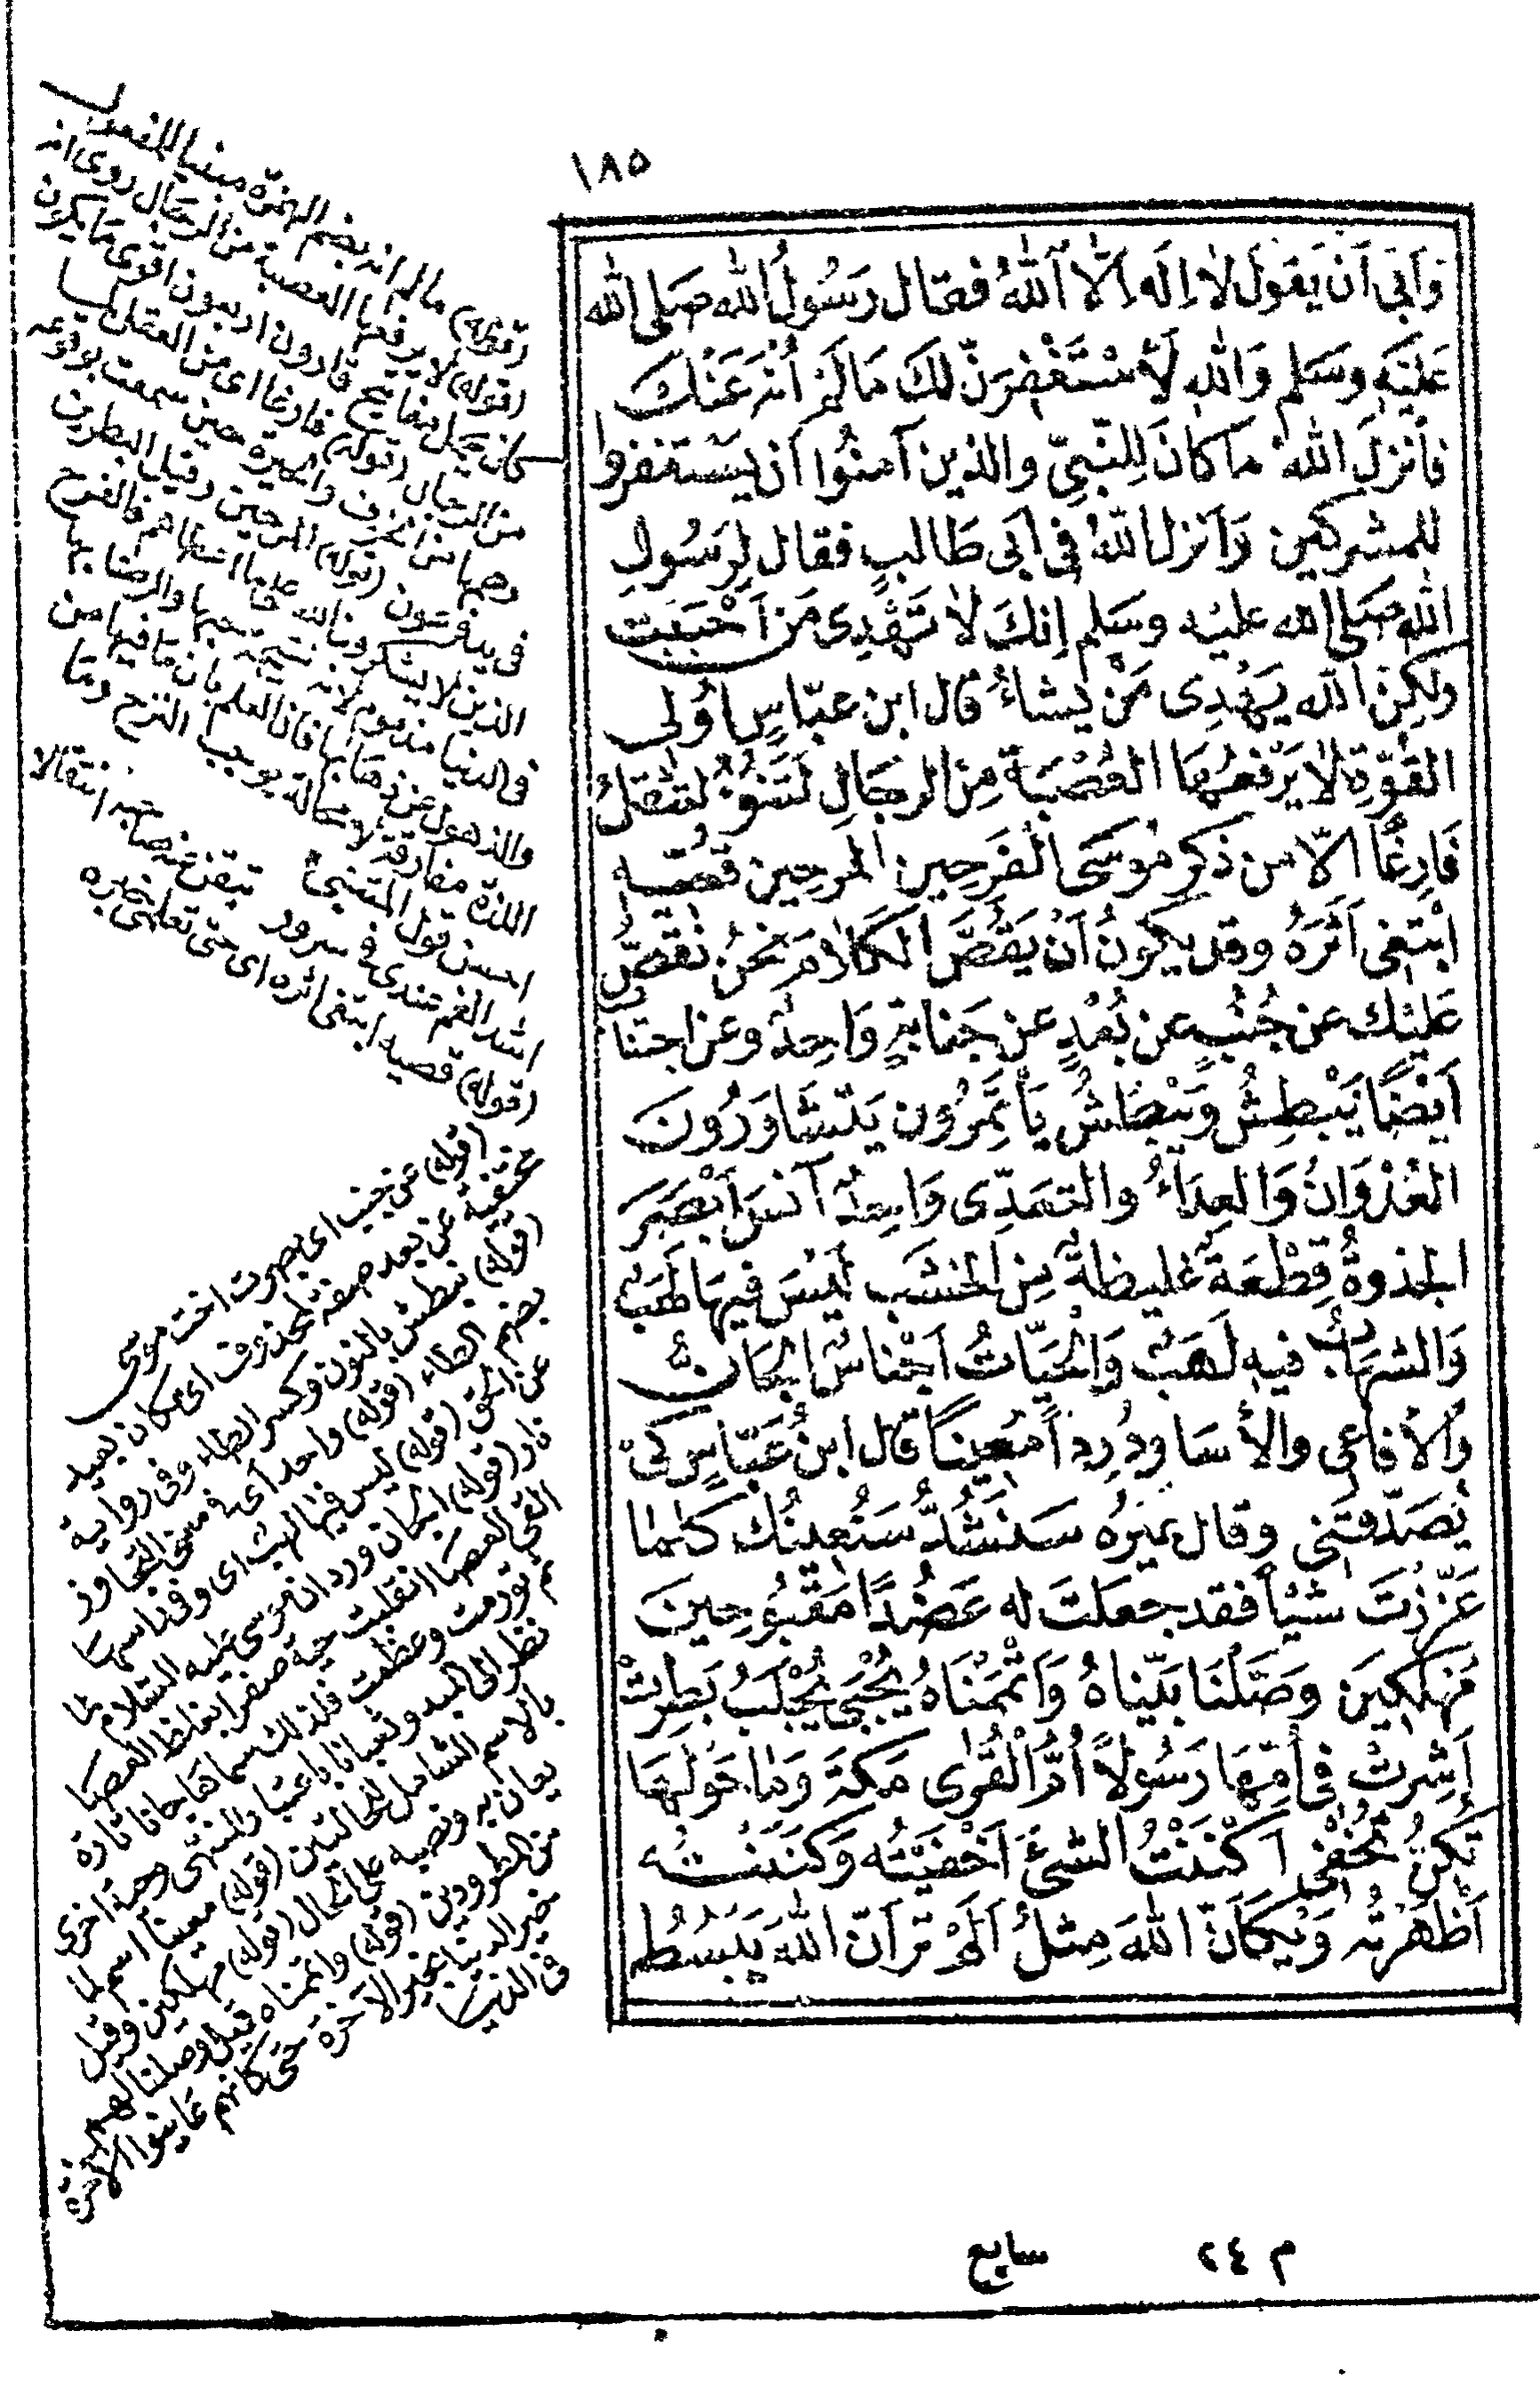 ١٨٥
وَاَبَى اَنْ يَقُولَ لاٰ اِلٰهَ اِلَّا اَللّٰهُ فقال رَسُولُ اللّٰه صَلى اللّٰه
عَلَيْهِ وسَلم وَاللّٰهِ لَأَسْتَغْفِرَنَّ لكَ مَا لَمْ اُنْهَ عَنْكَ
فأنْزَلَ اللّٰهُ مَا كانَ لِلنَّبِيِّ والذين آمنُوا اَن يَسْتَغفروا
للمشركين وَاَنزل اللّٰهُ فى اَبى طَالبٍ فقال لِرَسُولِ
اللّٰه صَلى اللّٰه عليْه وسَلم اِنكَ لاٰ تَهْدِى مَن اَحْبَبْتَ
ولكِنّ اللّٰه يَهْدِى مَنْ يَشاءُ قال ابن عبّاسٍ اُولى
القُوّةِ لاٰ يَرْفعُهَا العُصْبَةُ مِنَ الرجَالِ لَتَنُوْءُ لَتثْقلُ
فَارِغًا الاّ من ذكرِ مُوسَى الفَرِحِين المرحِين قُصّيه
ابْتغِى اَثَرَهُ وقد يكونُ اَنْ يَقُصَّ الكلاٰمَ نَحْنُ نَقُصُّ
عَليْكَ عن جُنُبٍ عن بُعْدٍ عن جَنابةٍ وَاحِدٌ وعن اجتنابٍ
اَيْضًا يَبْطِشُ ويَبْطُشُ يَأتَمِرُون يَتَشَاوَرُونَ
العُدْوَانُ وَالعدَاءُ والتعَدِّى وَاحِدٌ آنسَ اَبْصَرَ
الجذوةُ قِطْعَةٌ غَليظةٌ مِن الخشَبِ لَيْسَ فيهَا لهَبٌ
وَالشهَابُ فيهِ لَهَبٌ وَالحَيّاتُ اَجْناسٌ الجَانُّ
وَالأفاعِى والأسَاوِدُ رِدءًا مُعينًا قال ابنُ عَبّاسٍ كىْ
يُصَدِّقنى وقال غيْرُه سَنشُدُّ سَنُعِينُك كلما
عَزّزْتَ شيْأ فقد جعَلتَ له عَضُدًا مَقبُوحِينَ
مُهْلَكِينَ وَصَّلْنَا بَيّناهُ وَأتْمَمْناهُ يُجْبَى يُجْلَبُ بَطِرَتْ
اَشِرَتْ فى اُمِّهَا رَسُولاً اُمُّ القُرٰى مَكةُ وَمَا حَوْلهَا
تُكِنُّ تُخْفِى اَكْنَنْتُ الشئَ اَخْفَيْتُه وَكَنَنْتُه
اَظْهَرْتُه وَيْكَأنّ اللّٰهَ مِثلُ اَلَمْ تَرَ اَنّ اللّٰهَ يَبْسُطُ
(قوله) ما لم انه بضم الهمزة مبنيا للمفعول
(قوله) لا يرفعها العصبة من الرجال روى انه
كان يحمل مفاتيح قارون اربعون اقوى ما يكون
من الرجال (قوله) فارغا اى من العقل لما
دهمها من الخوف والحيرة حين سمعت بوقوعه
فى يد فرعون (قوله) المرحين وقيل البطرين
الذين لا يشكرون الله على ما اعطاهم فالفرح
فى الدنيا مذموم لانه نتيجة حبها والرضا بها
والذهول عن ذهابها فان العلم بان ما فيها من
اللذة مفارقة لا محالة يوجب الترح وما
احسن قول المتنبى
اشد الغم عندى فى سرور تيقن عنه صاحبه انتقالا
(قوله) قصيه ابتغى اثره اى حتى تعلمى خبره
(قوله) عن جنب اى بصرت اخت موسى
عن بعد صفة لمحذوف اى مكان بعيد
(قوله) نبطش بالنون وكسر الطاء وفى رواية
بضم الطاء (قوله) واحد اى فى معنى التجاوز
عن الحق (قوله) ليس فيها لهب اى
نار (قوله) الجان ورد ان موسى عليه السلام لما
القى العصا انقلبت حية صفراء بغلظ العصا
ثم تورمت وعظمت فلذلك سماها جانا تارة
نظرا الى المبدو وثعبانا باعتبار المنتهى وحية اخرى
بالاسم الشامل للحالتين (قوله) معينا اسم لما
يعان به ونصبه على الحال (قوله) مهلكين وقيل
من المطرودين (قوله) واتممناه قيل وصلنا لهم
خبر الدنيا بخبر الآخرة حتى كانهم عاينوا الآخرة
فى الدنيا
م ٢٤ سابع